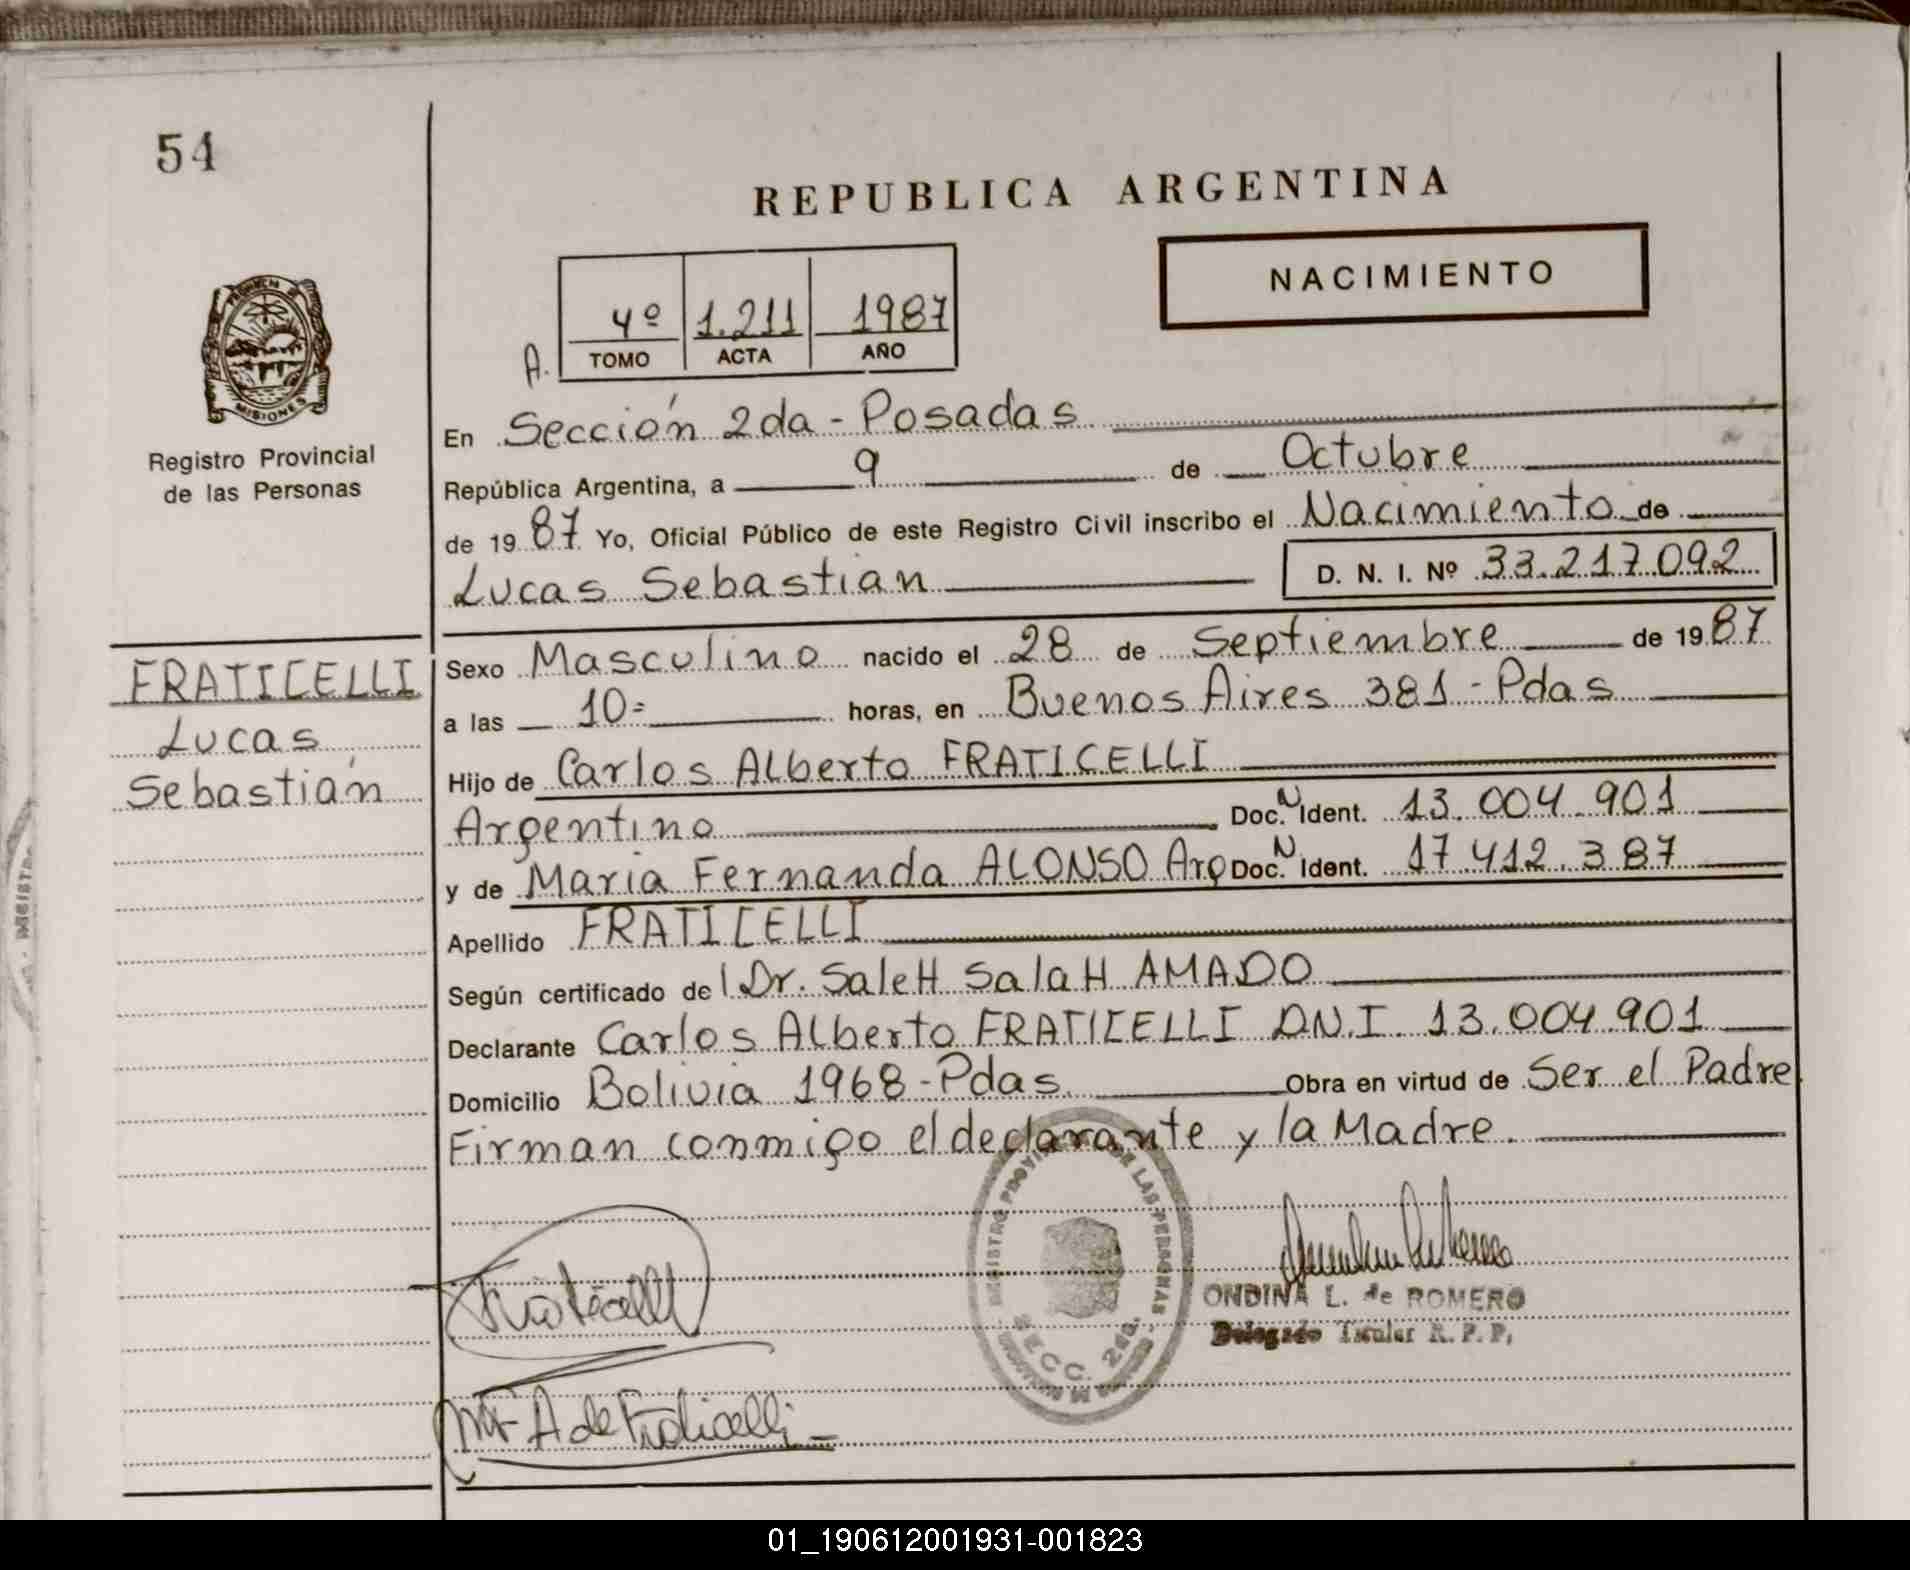 54
REPUBLICA ARGENTINA
NACIMIENTO
A. 4º 1.211 1987
TOMO ACTA AÑO
PROVINCIA DE
MISIONES
Registro Provincial
de las Personas
En Sección 2da - Posadas
República Argentina, a 9 de Octubre
de 1987 Yo, Oficial Público de este Registro Civil inscribo el Nacimiento de
Lucas Sebastian D. N. I. Nº 33.217.092
FRATICELLI
Lucas
Sebastián
Sexo Masculino nacido el 28 de Septiembre de 1987
a las 10= horas, en Buenos Aires 381 - Pdas
Hijo de Carlos Alberto FRATICELLI
Argentino Doc. N Ident. 13.004.901
y de Maria Fernanda ALONSO Arg Doc. N Ident. 17.412.387
Apellido FRATICELLI
Según certificado del Dr. SaleH SalaH AMADO
Declarante Carlos Alberto FRATICELLI D.N.I. 13.004.901
Domicilio Bolivia 1968 - Pdas Obra en virtud de Ser el Padre
Firman conmigo el declarante y la Madre.
REGISTRO PROVINCIAL DE LAS PERSONAS
SECC. 2da.
Fraticelli
ONDINA L. de ROMERO
Delegado Titular R. P. P.
MF A de Fraticelli
01_190612001931-001823